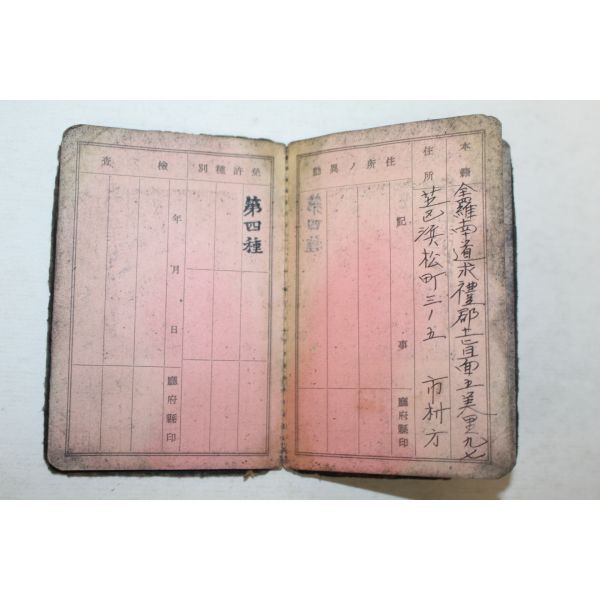 本籍 全羅南道求禮郡土旨面五美里九七
住所 芝区浜松町三ノ五 市村方
住所ノ異動
記事
廳府縣印
免許種別
第四種
檢査
年月日
廳府縣印